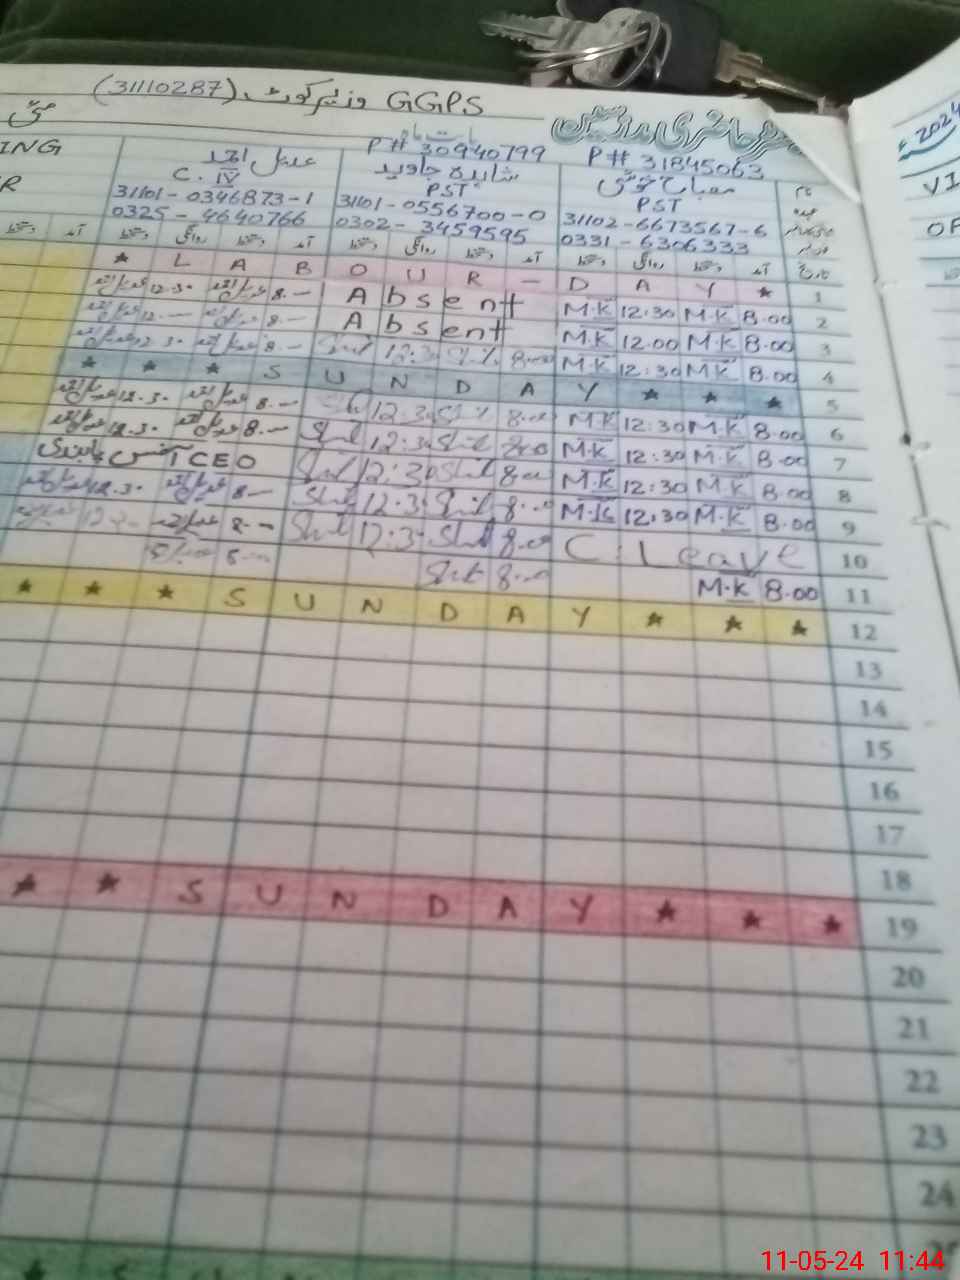 GGPS وزیر کوٹ (31110287)
حاضری مدرسین
2024ء
مئی
P# 31845063
P# 30940799
نام
مصباح خوشی
شاہدہ جاوید
عدیل احمد
ING
VI
PST
PST
C. IV
R
31102-6673567-6
31101-0556700-0
31101-0346873-1
0331-6306333
0302-3459595
0325-4640766
آمد دستخط روانگی دستخط آمد دستخط روانگی دستخط آمد دستخط روانگی دستخط آمد دستخط
1 ★ L A B O U R - D A Y ★
2 8.00 M.K 12:30 M.K Absent 8.— عدیل احمد 12.30 عدیل احمد
3 8.00 M.K 12.00 M.K Absent 8.— عدیل احمد 12.— عدیل احمد
4 8.00 M.K 12:30 M.K 8.00 12:30 8.— عدیل احمد 12.30 عدیل احمد
5 ★ ★ ★ S U N D A Y ★ ★ ★
6 8.00 M.K 12:30 M.K 8.00 12:30 8.— عدیل احمد 12.30 عدیل احمد
7 8.00 M.K 12:30 M.K 8.00 12:30 8.— عدیل احمد 12.30 عدیل احمد
8 8.00 M.K 12:30 M.K 8.00 12:30 CEO آفس
9 8.00 M.K 12:30 M.K 8.00 12:30 8.— عدیل احمد 12.30 عدیل احمد
10 C. Leave 8.00 12:30 8.— عدیل احمد 12.30
11 8.00 M.K 8.00 8.00
12 ★ ★ ★ S U N D A Y ★ ★ ★
13
14
15
16
17
18
19 ★ ★ S U N D A Y ★ ★ ★
20
21
22
23
24
11-05-24 11:44